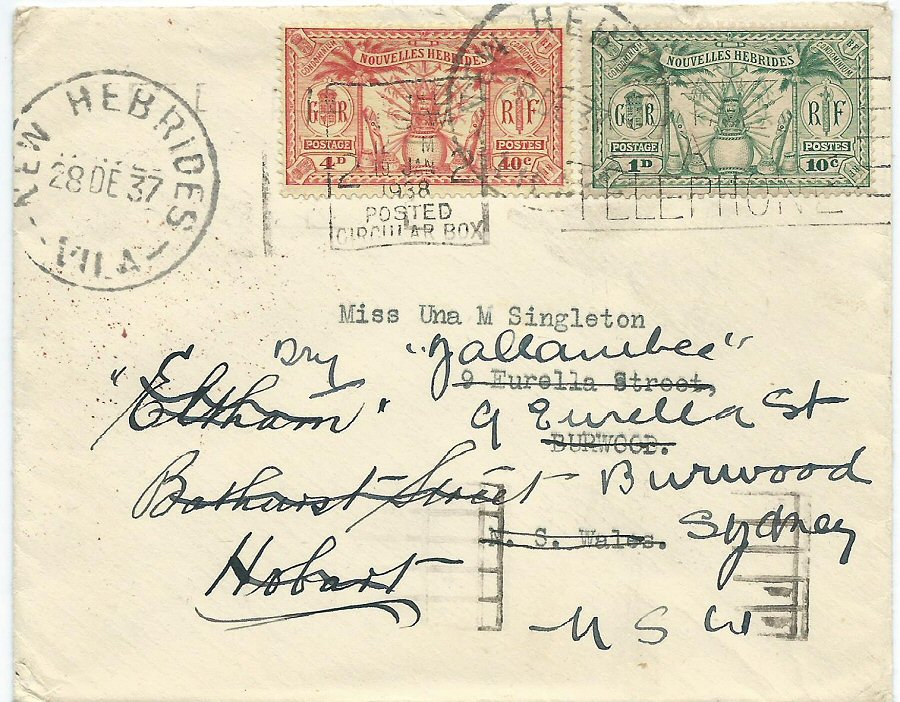 NEW HEBRIDES
28 DE 37
VILA
NEW HEB
CONDOMINIUM
NOUVELLES HEBRIDES
GR RF
POSTAGE POSTES
4D 40c
CONDOMINIUM
NOUVELLES HEBRIDES
GR RF
POSTAGE POSTES
1D 10c
JAN
1938
POSTED
CIRCULAR BOX
TELEPHONE
Miss Una M Singleton
"Jallambee"
9 Eurella Street,
"Eltham" 9 Eurella St
BURWOOD.
Bathurst Street Burwood
N. S. Wales. Sydney
Hobart
N S W